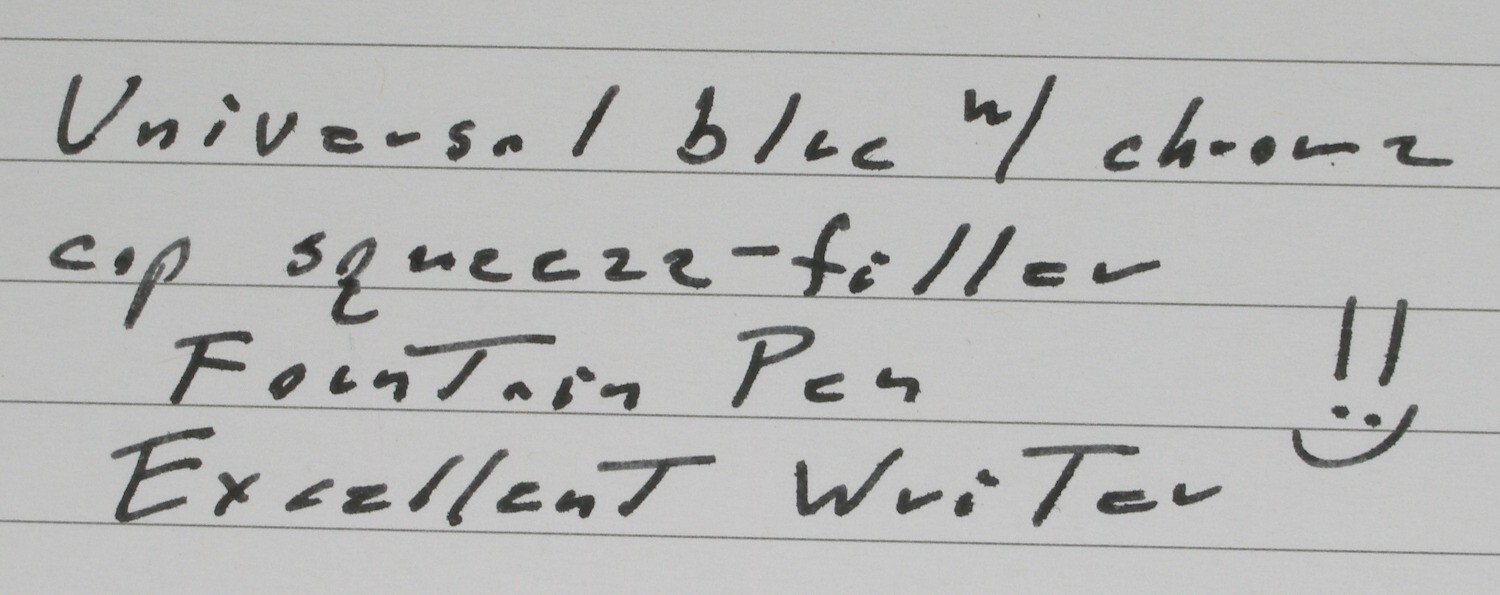 Universal blue w/ chrome
cap squeeze-filler
Fountain Pen !!
Excellent Writer